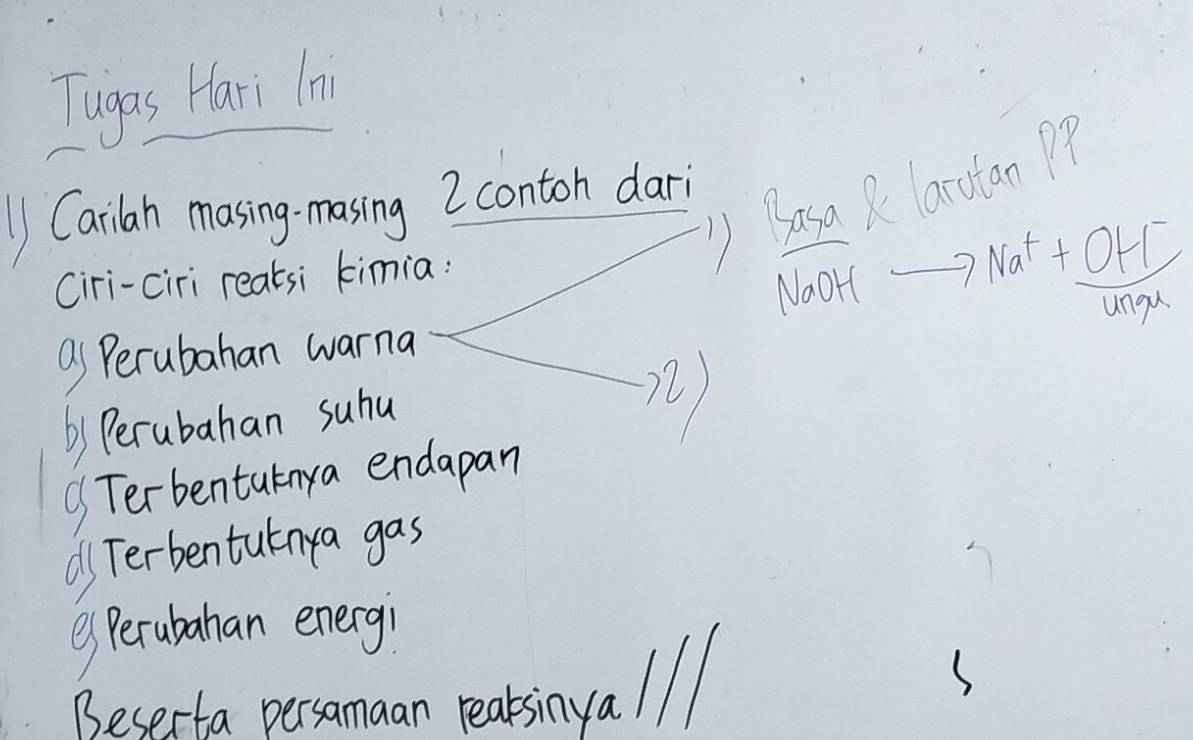 Tugas Hari Ini
1) Carilah masing-masing 2 contoh dari
ciri-ciri reaksi kimia:
a) Perubahan warna
b) Perubahan suhu
c) Terbentuknya endapan
d) Terbentuknya gas
e) Perubahan energi
Beserta persamaan reaksinya!!!
1) Basa & larutan PP
NaOH → Na⁺ + OH⁻
ungu
2)